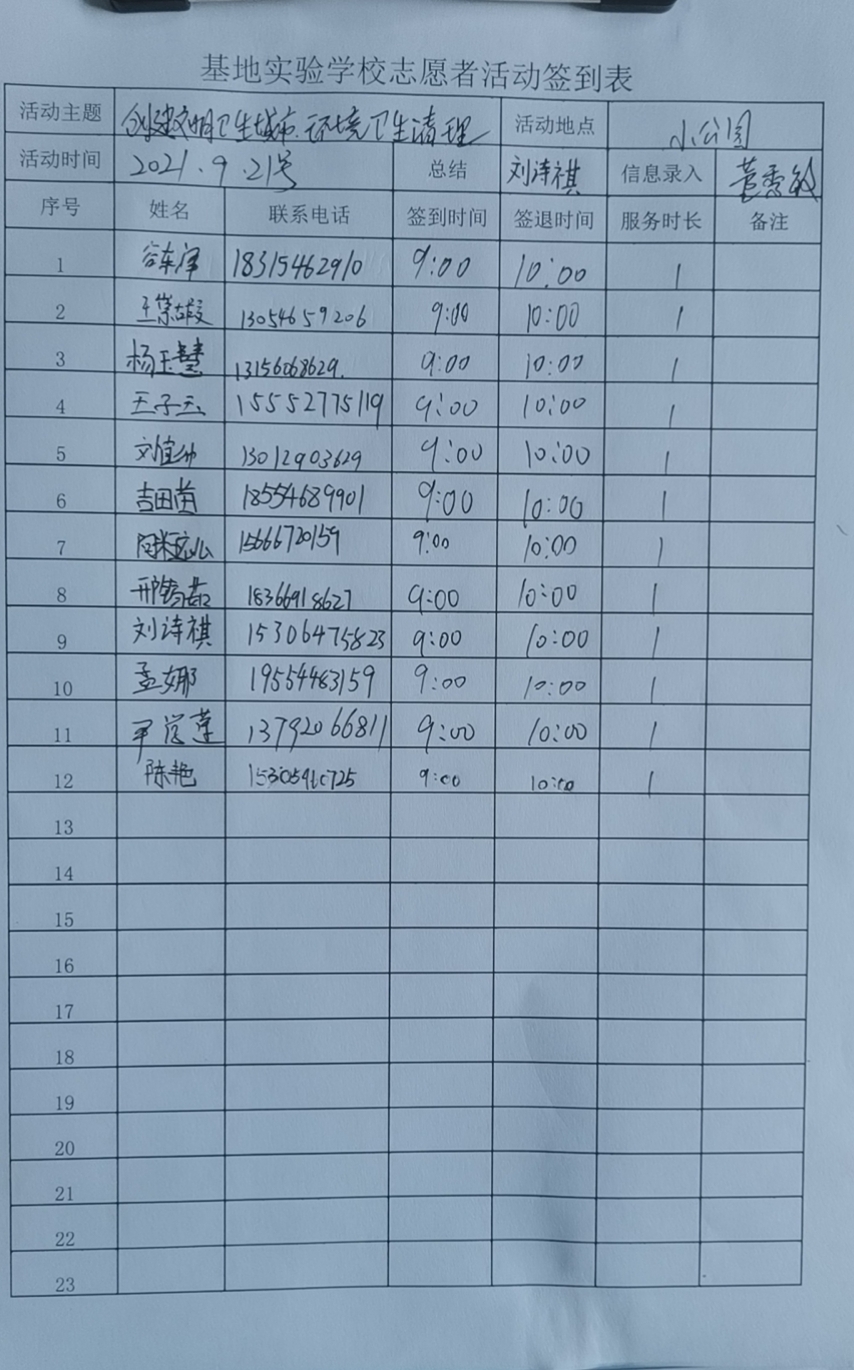 基地实验学校志愿者活动签到表
活动主题 创建文明卫生城市.环境卫生清理 活动地点 小公园
活动时间 2021.9.21号 总结 刘诗祺 信息录入 董秀敏
序号 姓名 联系电话 签到时间 签退时间 服务时长 备注
1 18315462910 9:00 10:00 1
2 13054659206 9:00 10:00 1
3 杨玉慧 13156068629. 9:00 10:00 1
4 王子玉 15552775119 9:00 10:00 1
5 13012903629 9:00 10:00 1
6 吉田苗 18554689901 9:00 10:00 1
7 15666720159 9:00 10:00 1
8 18366918627 9:00 10:00 1
9 刘诗祺 15306475823 9:00 10:00 1
10 孟娜 19554463159 9:00 10:00 1
11 13792066811 9:00 10:00 1
12 陈艳 9:00 10:00 1
13
14
15
16
17
18
19
20
21
22
23